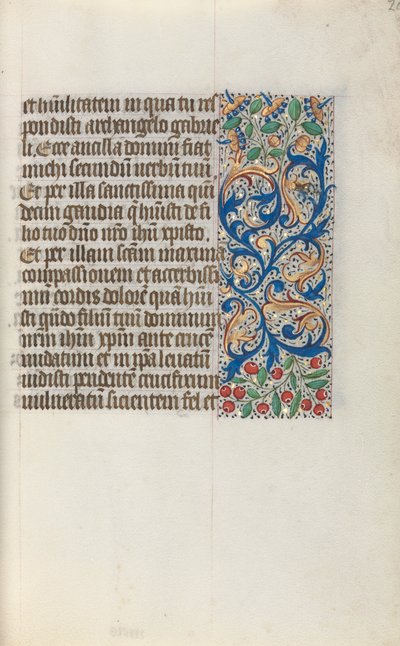 et hūilitatem in qua tu res
pondisti archangelo gabrie
li. Ecce ancilla domini fiat
michi secundū verbū tuū
Et per illa sanctissima quī
decim gaudia q̄ hūisti de fi
lio tuo dn̄o nr̄o ihū xpisto.
Et per illam scām maximā
compassionem et acerbissi
mū cordis dolorē quā hūi
sti qn̄do filiū tuū dominū
nr̄m ihūm xpm̄ ante crucē
nudatum et in ip̄a leuatū
vidisti pendentē crucifixum
vulneratū sicientem fel et